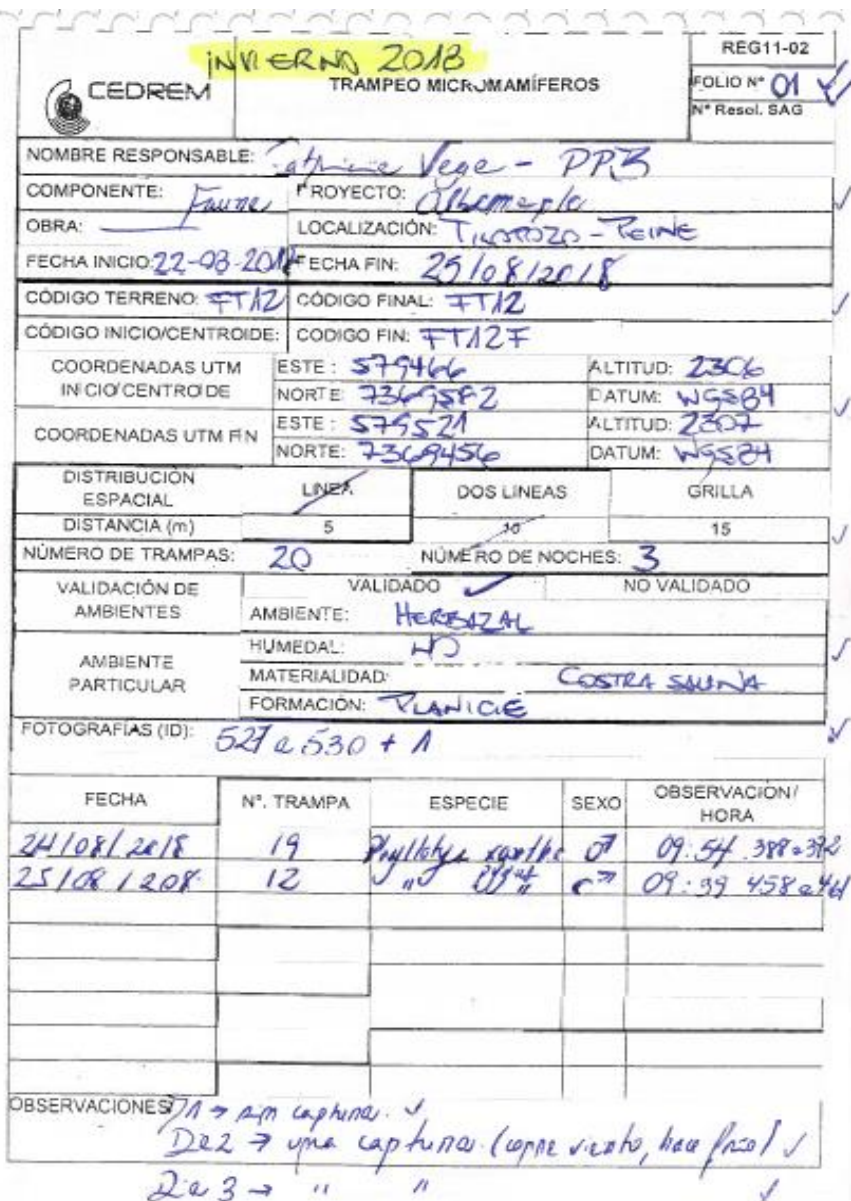 INVIERNO 2018
REG11-02
CEDREM
TRAMPEO MICROMAMÍFEROS
FOLIO N° 01
N° Resol. SAG
NOMBRE RESPONSABLE: Vega - PPB
COMPONENTE: Fauna PROYECTO: Albemarle
OBRA: LOCALIZACIÓN: TILOPOZO - PEINE
FECHA INICIO: 22-08-2018 FECHA FIN: 25/08/2018
CÓDIGO TERRENO: FT12 CÓDIGO FINAL: FT12
CÓDIGO INICIO/CENTROIDE: CODIGO FIN: FT12F
COORDENADAS UTM INICIO/CENTROIDE
ESTE: 579466 ALTITUD: 2306
NORTE: 7369582 DATUM: WGS84
COORDENADAS UTM FIN
ESTE: 579521 ALTITUD: 2307
NORTE: 7369456 DATUM: WGS84
DISTRIBUCIÓN ESPACIAL LINEA DOS LINEAS GRILLA
DISTANCIA (m) 5 10 15
NÚMERO DE TRAMPAS: 20 NÚMERO DE NOCHES: 3
VALIDACIÓN DE AMBIENTES VALIDADO NO VALIDADO
AMBIENTE: HERBAZAL
AMBIENTE PARTICULAR
HUMEDAL: NO
MATERIALIDAD: COSTRA SALINA
FORMACIÓN: PLANICIE
FOTOGRAFÍAS (ID): 527 a 530 + 1
FECHA N°. TRAMPA ESPECIE SEXO OBSERVACIÓN/ HORA
24/08/2018 19 Phyllotys xantho ♂ 09:54 388 a 392
25/08/208 12 " " ♂ 09:39 458 a 461
OBSERVACIONES D1 → sin capturas.
Dia2 → una captura (corre viento, hace frio)
Dia 3 → " "